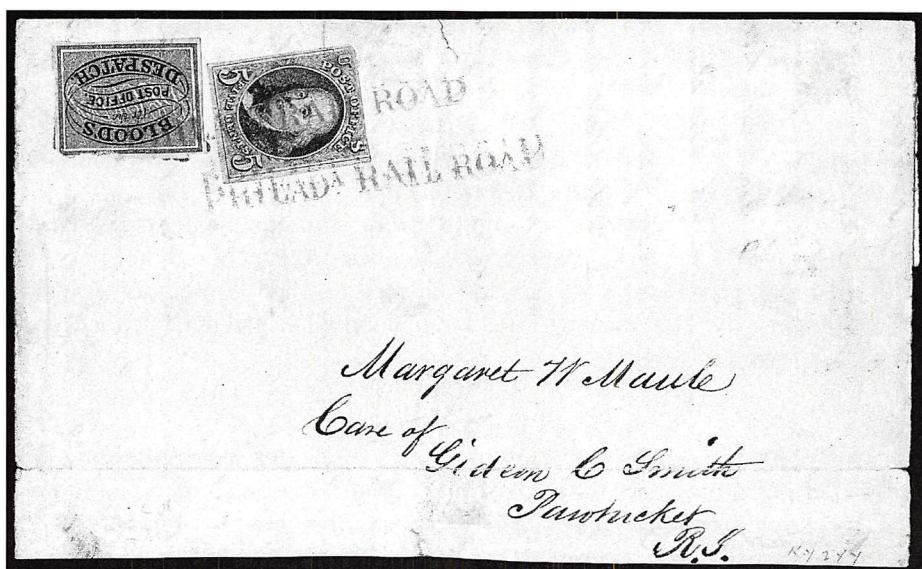 BLOOD'S
for the
POST OFFICE
DESPATCH
POST OFFICE
5 5
RAIL ROAD
PHILADA RAIL ROAD
Margaret W Maule
Care of
Gideon C Smith
Pawtucket
R.I.